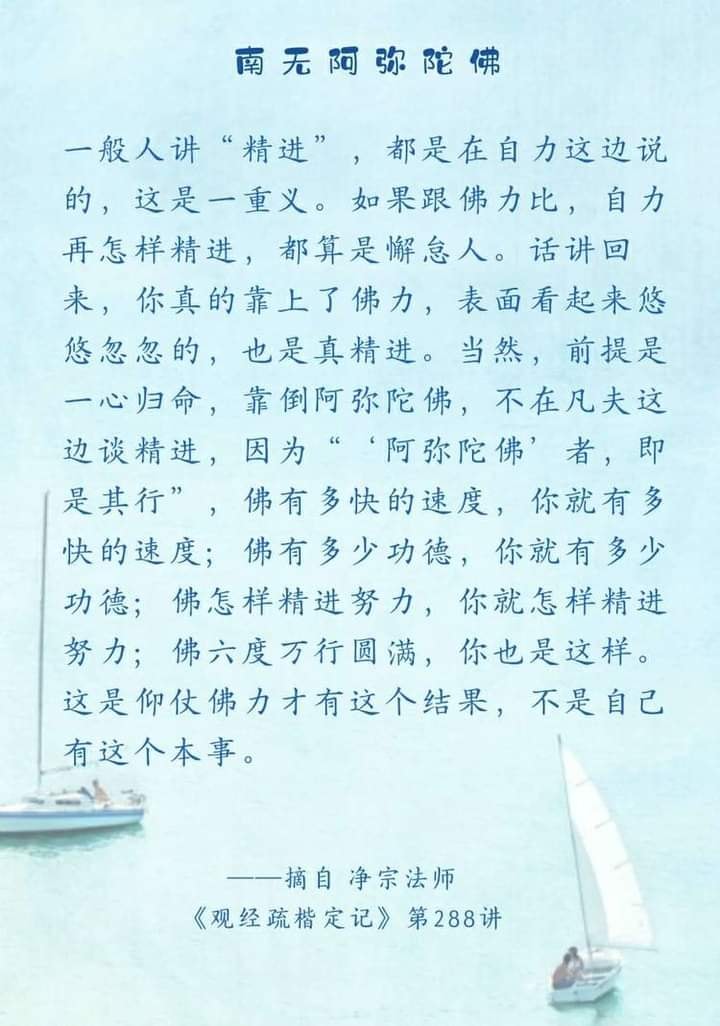 南无阿弥陀佛
一般人讲“精进”，都是在自力这边说
的，这是一重义。如果跟佛力比，自力
再怎样精进，都算是懈怠人。话讲回
来，你真的靠上了佛力，表面看起来悠
悠忽忽的，也是真精进。当然，前提是
一心归命，靠倒阿弥陀佛，不在凡夫这
边谈精进，因为“‘阿弥陀佛’者，即
是其行”，佛有多快的速度，你就有多
快的速度；佛有多少功德，你就有多少
功德；佛怎样精进努力，你就怎样精进
努力；佛六度万行圆满，你也是这样。
这是仰仗佛力才有这个结果，不是自己
有这个本事。
——摘自 净宗法师
《观经疏楷定记》第288讲